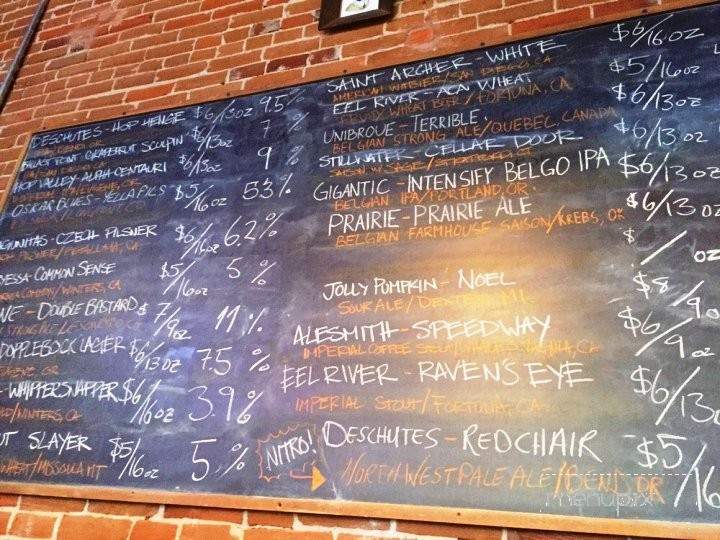 DESCHUTES - HOP HENGE $6/13oz 9.5%
GRAPEFRUIT SCULPIN $6/13oz 7%
HOP VALLEY - ALPHA CENTAURI $6/13oz 9%
OSKAR BLUES - YELLA PILS $5/16oz 5.3%
CZECH PILSNER $6/16oz 6.2%
COMMON SENSE $5/16oz 5%
- DOUBLE BASTARD $7/9oz 11%
DOPPLEBOCK LAGER $6/13oz 7.5%
- WHIPPERSNAPPER $6/16oz 3.9%
SLAYER $5/16oz 5%
MISSOULA MT
SAINT ARCHER - WHITE $6/16oz
SAN DIEGO, CA
EEL RIVER - ACAI WHEAT $5/16oz
WHEAT BEER / FORTUNA, CA
UNIBROUE - TERRIBLE $6/13oz
BELGIAN STRONG ALE / QUEBEC, CANADA
STILLWATER - CELLAR DOOR $6/13oz
SAISON W/ SAGE /
GIGANTIC - INTENSIFY BELGO IPA $6/13oz
BELGIAN IPA / PORTLAND, OR.
PRAIRIE - PRAIRIE ALE $6/13oz
BELGIAN FARMHOUSE SAISON / KREBS, OK
$ / oz
JOLLY PUMPKIN - NOEL $8/9o
SOUR ALE / DEXTER, MI
ALESMITH - SPEEDWAY $6/9oz
IMPERIAL COFFEE
EEL RIVER - RAVEN'S EYE $6/13o
IMPERIAL STOUT / FORTUNA, CA
NITRO! DESCHUTES - REDCHAIR $5/16
NORTHWEST PALE ALE / BEND, OR
menupix